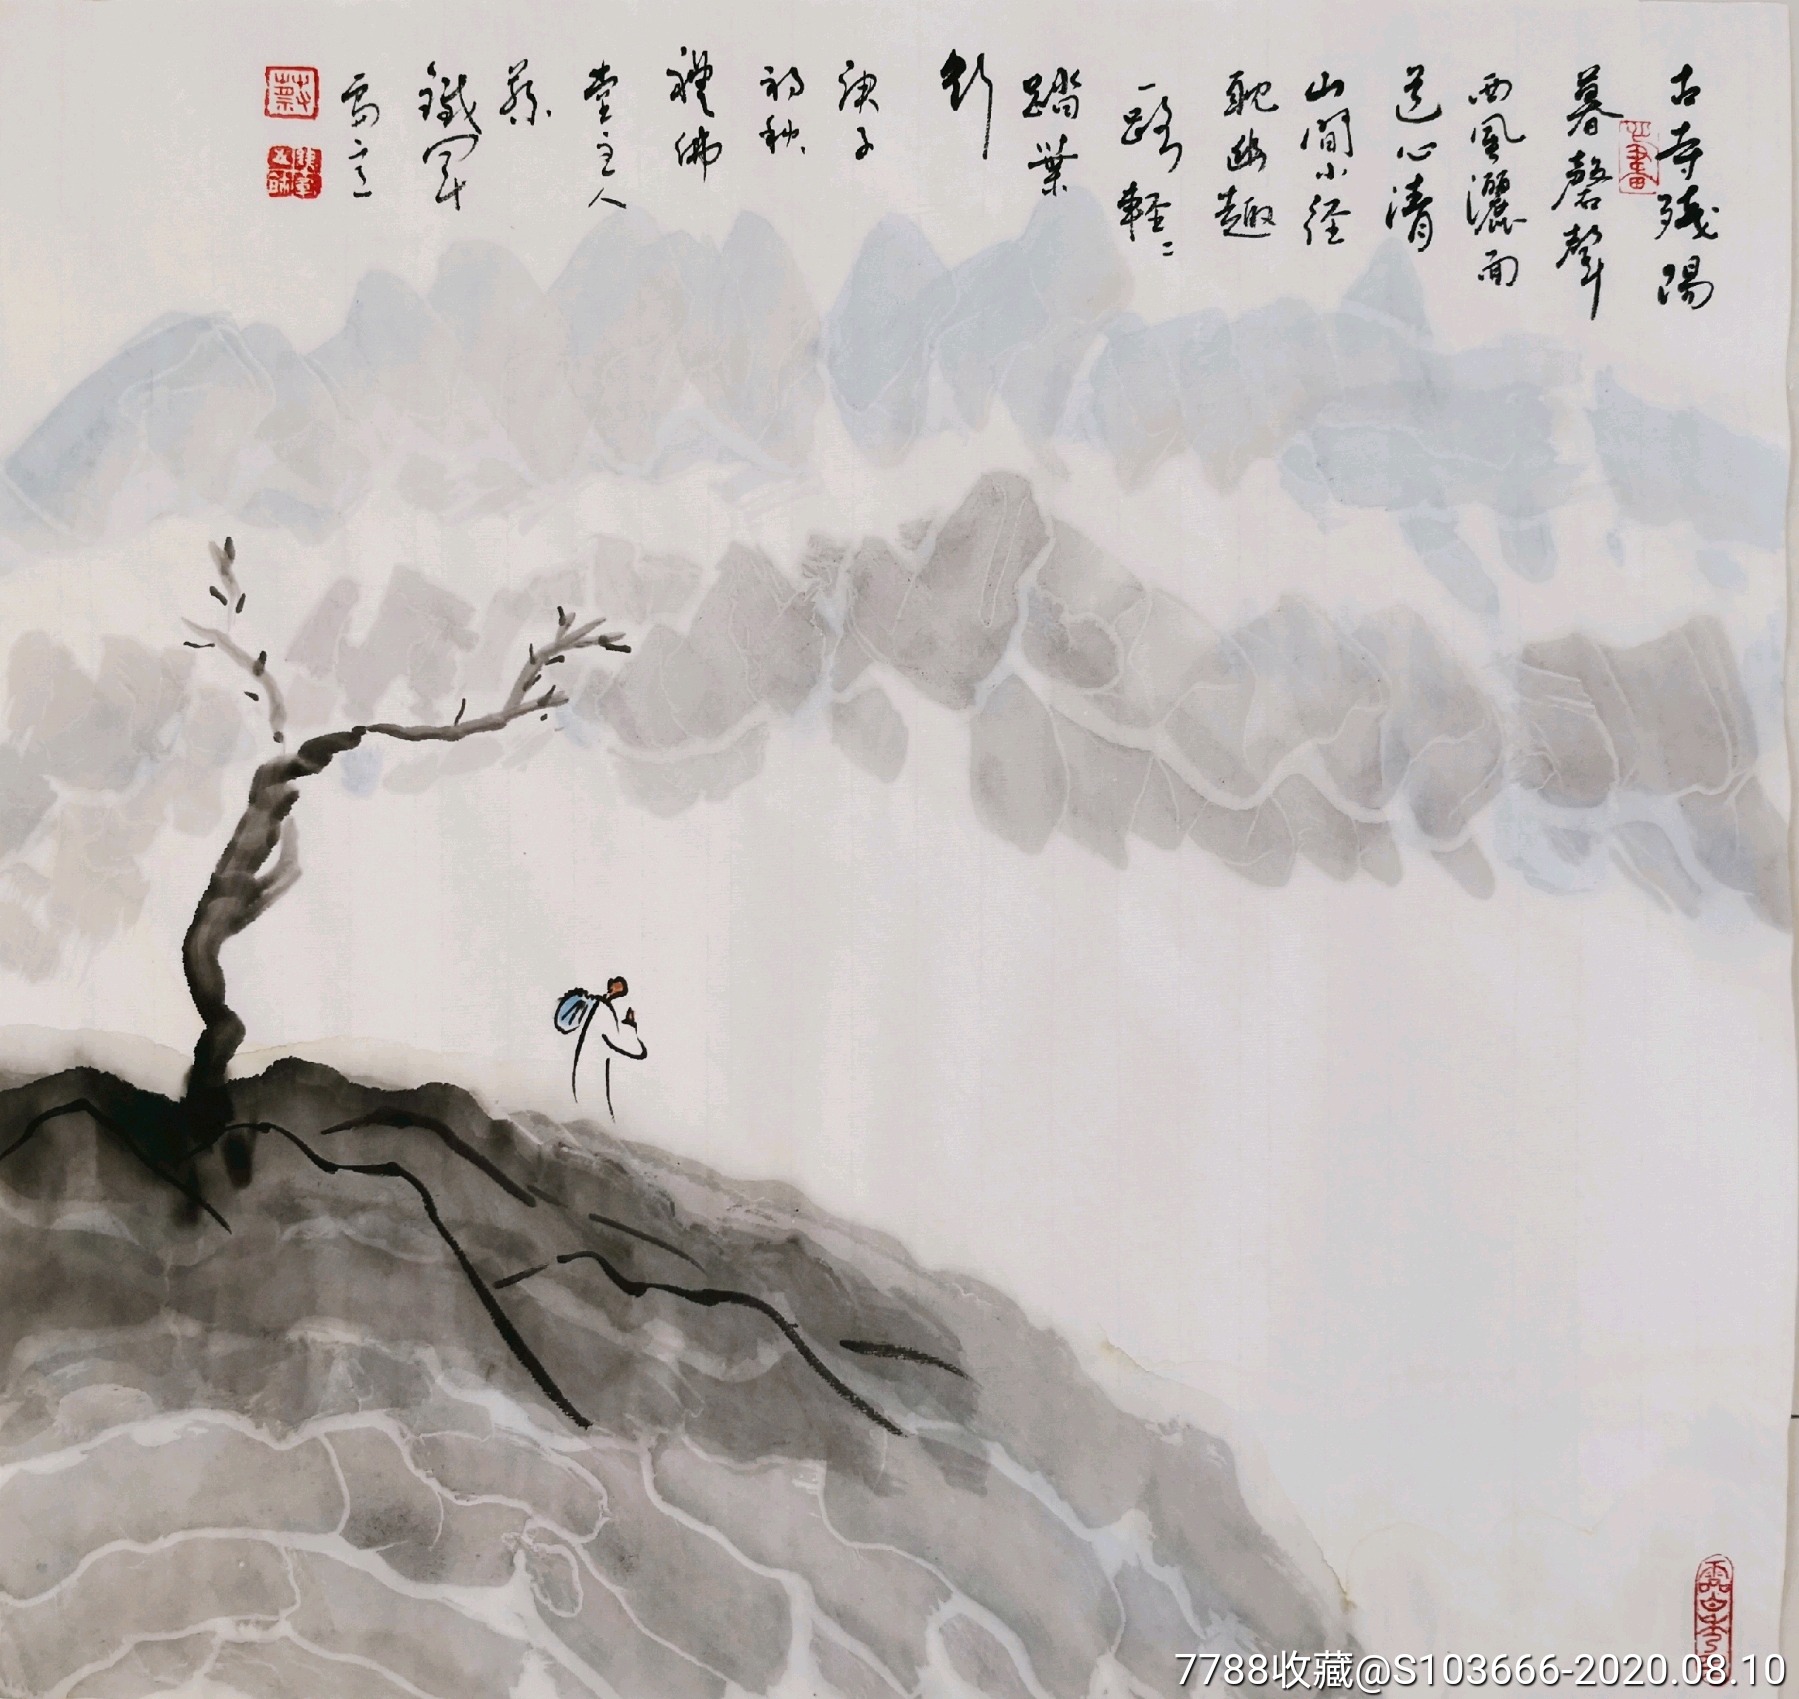 古寺殘陽
暮磬聲
西風灑面
道心清
山間小徑
耽幽趣
一路輕〻
踏葉
行
庚子
初秋
禮佛
堂主人
蔡
鐵軍
寫意
7788收藏@S103666-2020.08.10